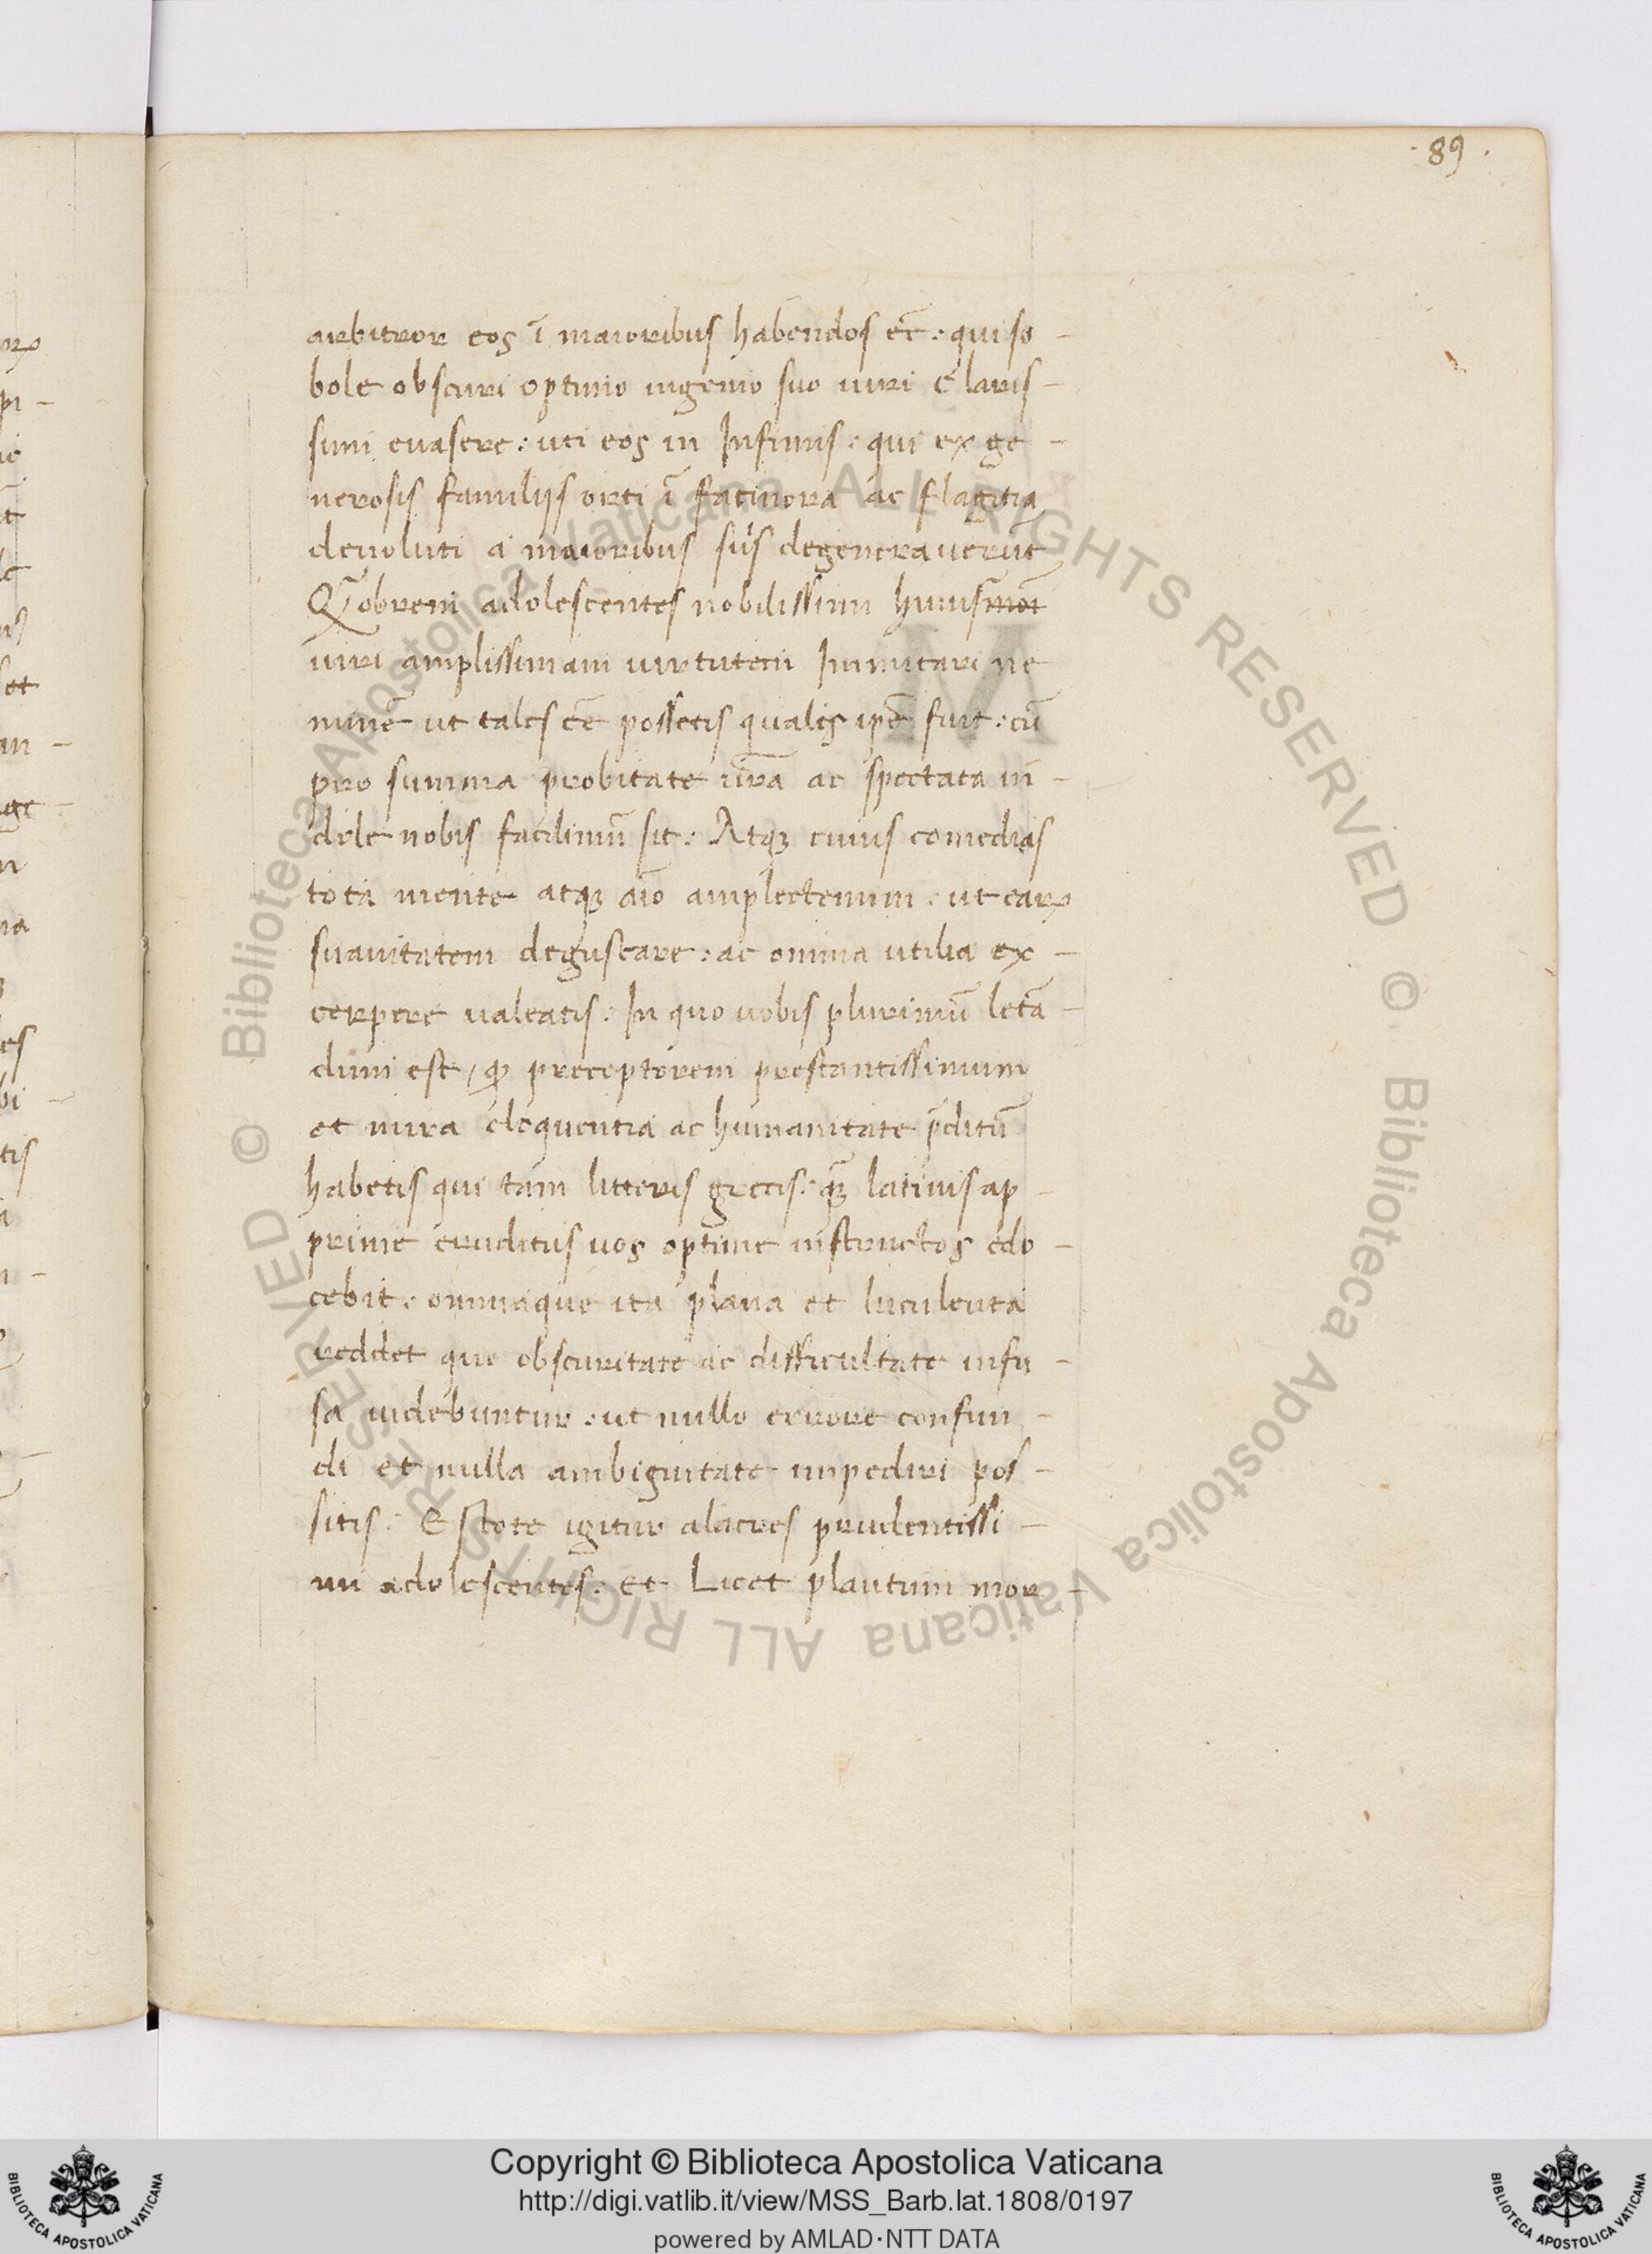 · 89 ·
arbitror eos ī maioribus habendos eē : qui so -
bole obscuri optimo ingenio suo uiri claris -
simi euasere : uti eos in Infimis : qui ex ge -
nerosis familijs orti ī facinora ac flagitia
deuoluti a maioribus suis degenerauerūt
Qāobrem adolescentes nobilissimi huiusmōi
uiri amplissimam uirtutem Immitari ne
mīnē ut tales eē possetis qualis ipē fuit : cū
pro summa probitate ūrā ac spectata in -
dole nobis facilimū sit : Atqȝ cuius comedias
tota mente atqȝ aīo amplectemini : ut earꝝ
suauitatem degustare : ac omnia utilia ex -
cerpere ualeatis : In quo uobis plurimū letā -
dum est / qꝫ preceptorem prestantissimum
et mira eloquentia ac humanitate p̄ditū
habetis qui tam litteris grecis : qȝ latinis ap -
prime eruditus uos optime instructos edo -
cebit : omniaque ita plana et luculenta
reddet que obscuritate ac difficultate infu -
sa uidebuntur : ut nullo errore confun -
di et nulla ambiguitate impediri pos -
sitis : Estote igitur alacres prudentissi -
mi adolescentes : et Licet plautum mor -
© Biblioteca Apostolica Vaticana ALL RIGHTS RESERVED © Biblioteca Apostolica Vaticana ALL RIGHTS RESERVED
Copyright © Biblioteca Apostolica Vaticana
http://digi.vatlib.it/view/MSS_Barb.lat.1808/0197
powered by AMLAD·NTT DATA
BIBLIOTECA APOSTOLICA VATICANA
BIBLIOTECA APOSTOLICA VATICANA